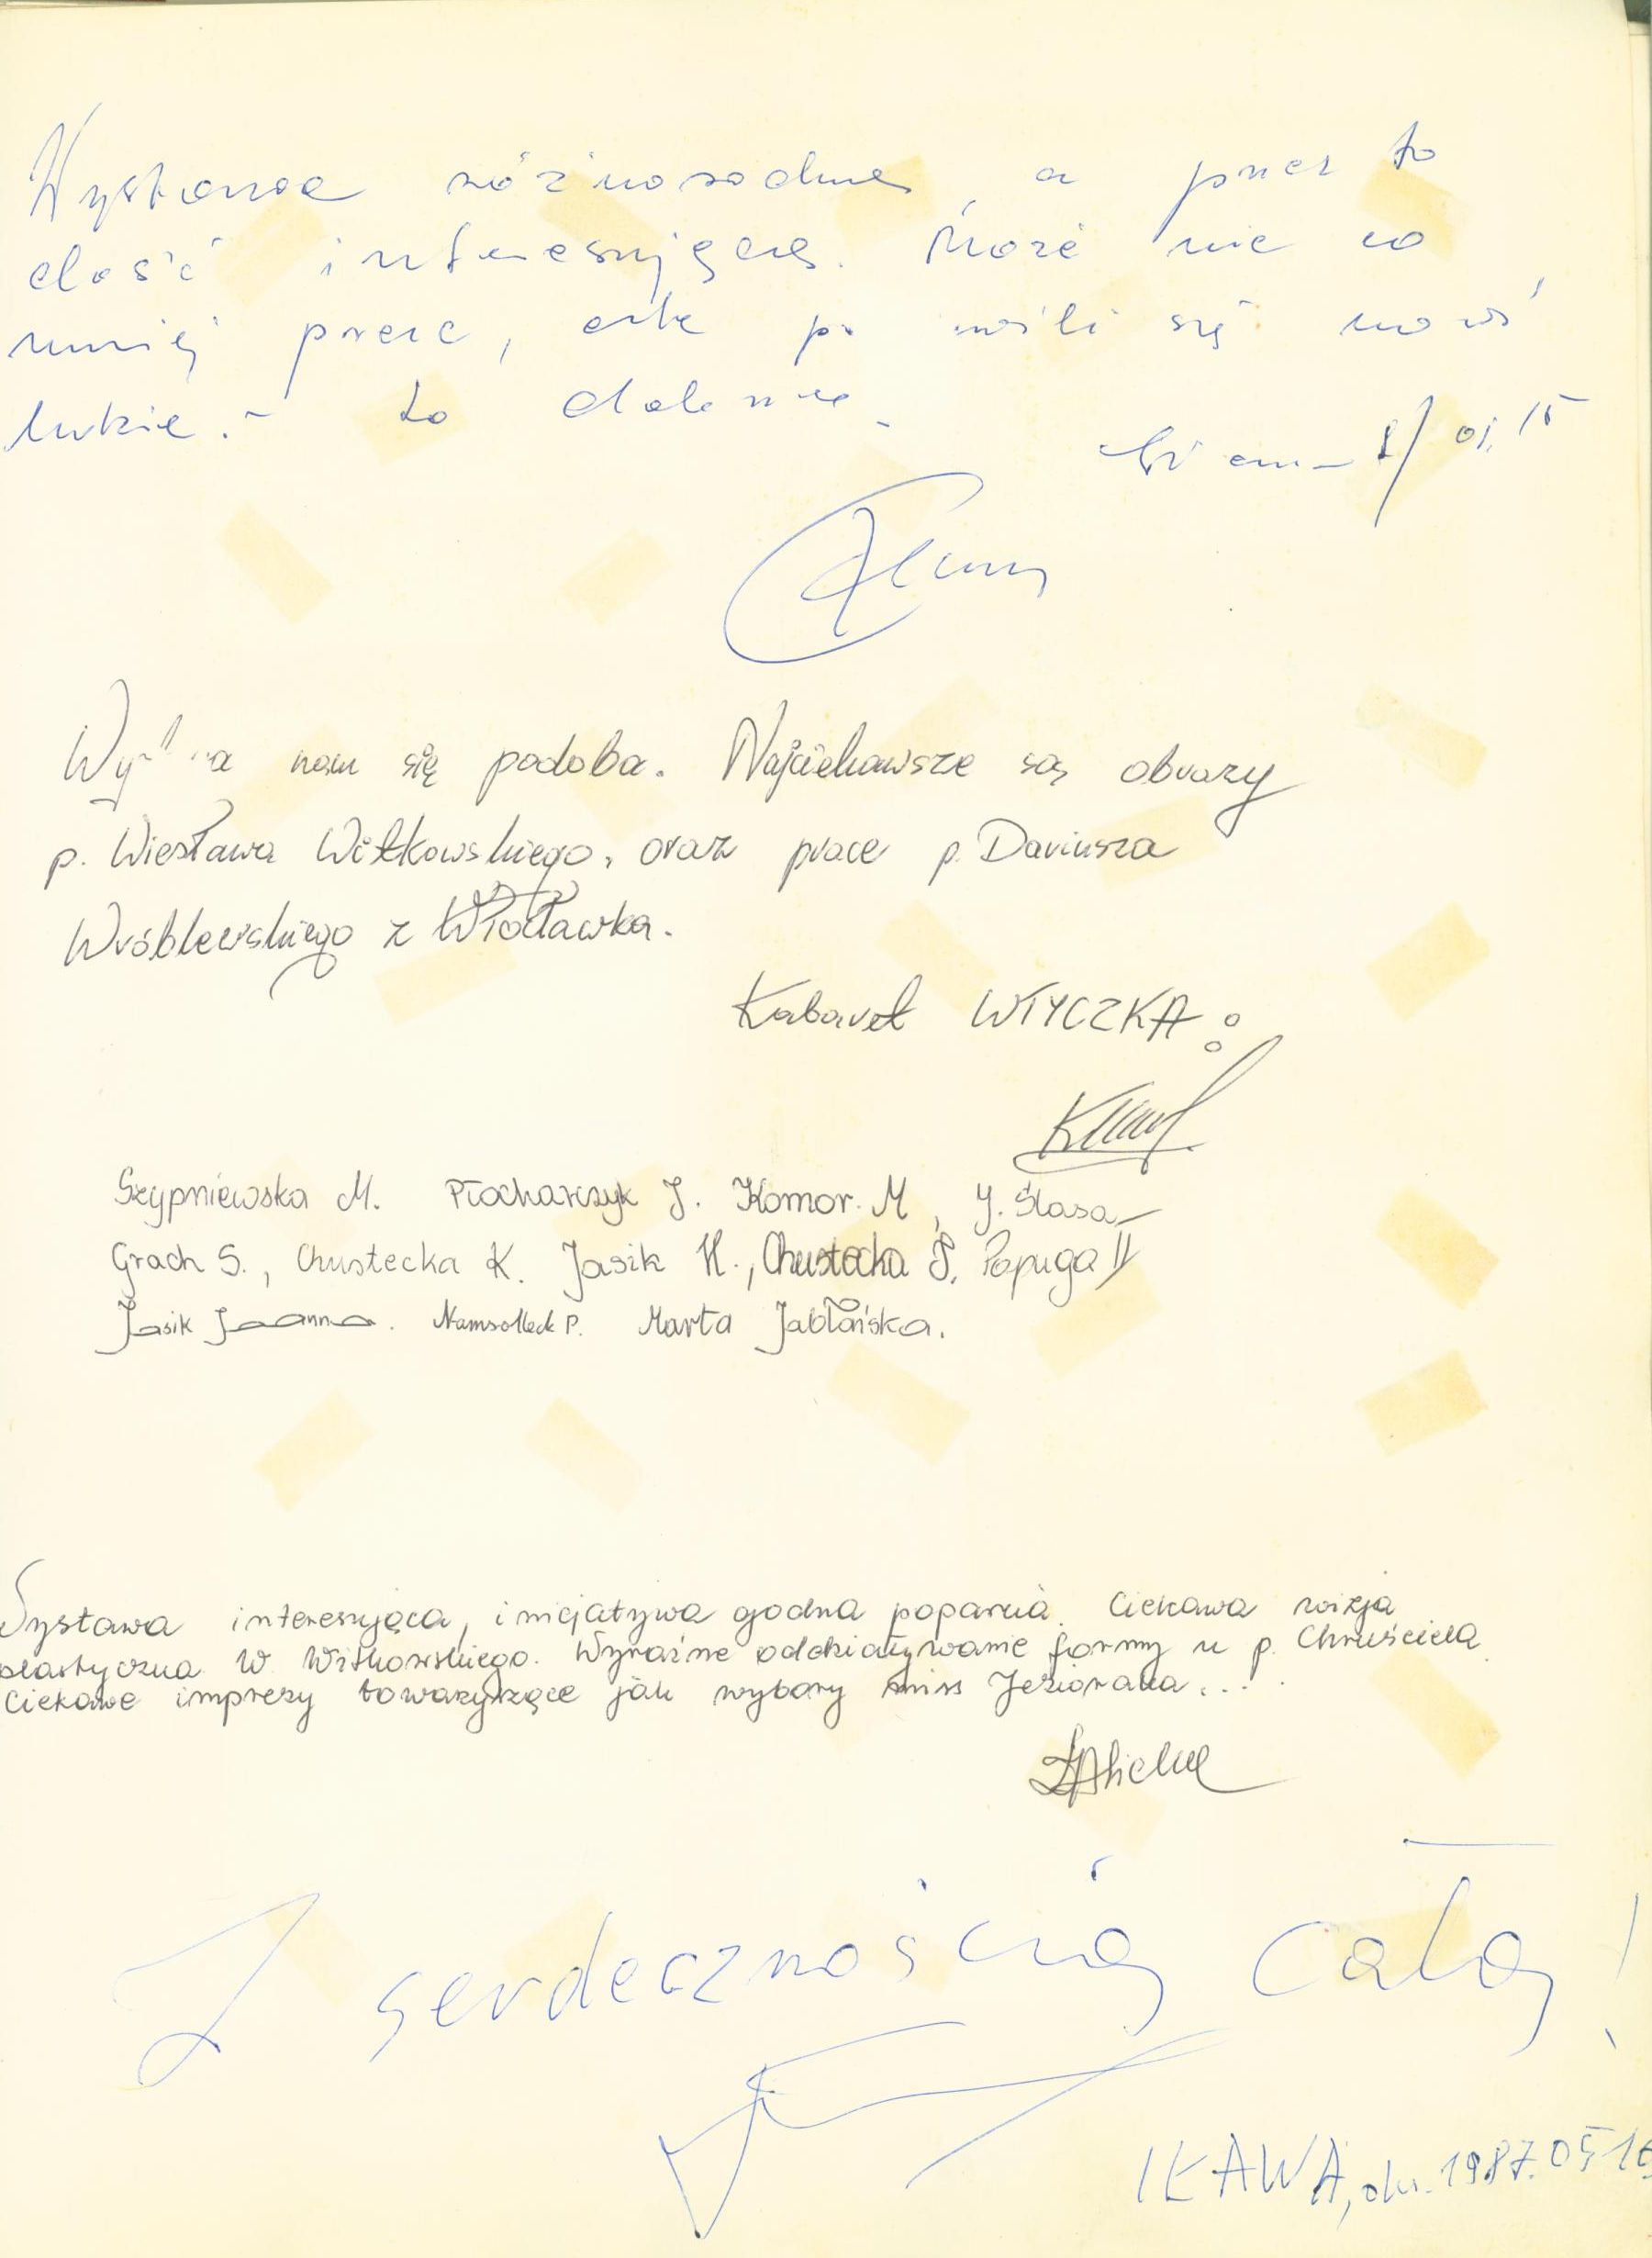 Wystawa różnorodna, a przez to
dość interesująca. Może nie co
mniej prac, ale po
ludzie. - to
05. 15
nam się podoba. Najciekawsze są obrazy
p. Wiesława Witkowskiego, oraz prace p. Dariusza
Wróblewskiego z Włocławka.
Kabaret WTYCZKA:
Szypniewska M. Płocharczyk J. Komor. M, J. Ślasa
Grach S., Chustecka K. Jasik H., Chustecka S. Papuga
Jasik Joanna. P. Marta Jabłońska.
Wystawa interesująca, inicjatywa godna poparcia. Ciekawa wizja
plastyczna W. Witkowskiego. Wyraźne oddziaływanie formy u p. Chruściela.
Ciekawe imprezy towarzyszące jak wybory miss Jezioraka...
Z serdecznością całą!
IŁAWA, dn. 1987.05.16